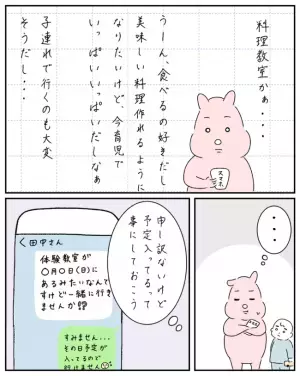 料理教室かぁ・・・
うーん、食べるの好きだし
美味しい料理作れるように
なりたいけど、今育児で
いっぱいいっぱいだしなぁ
子連れで行くのも大変
そうだし・・・
スマホ
・・・
申し訳ないけど
予定入ってるって
事にしておこう
＜田中さん
体験教室が
○月○日(日)に
あるみたいなんで
すけど一緒に行き
ませんか
すみません・・・
その日予定が
入ってるので
行けません